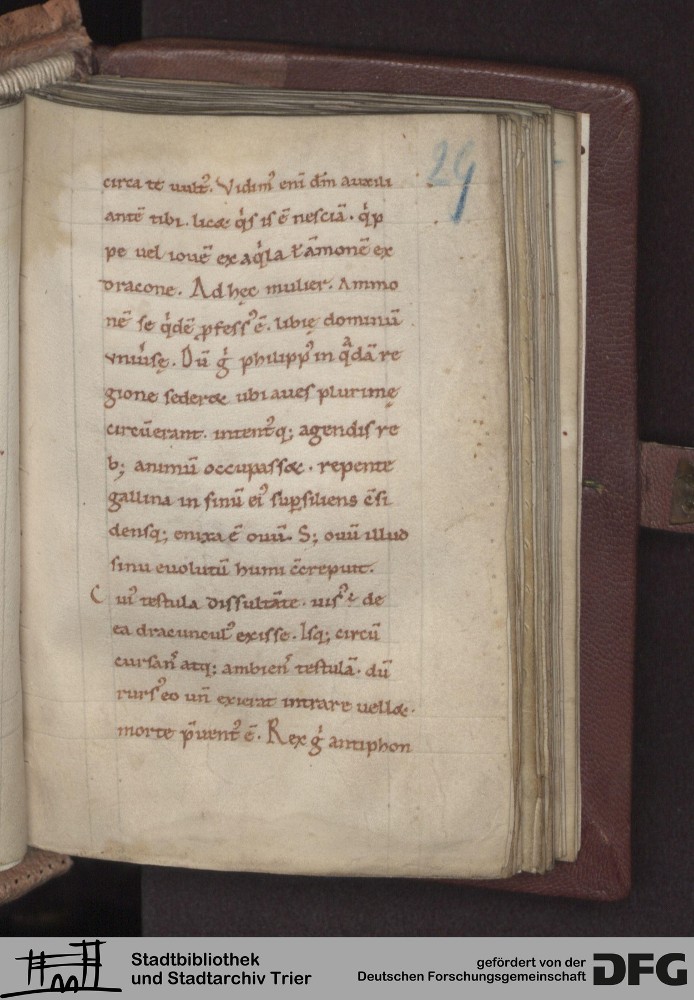 29
circa te uult᷒. Vidim᷒ eni dm̄ auxili
antē tibi. licæ q̇s is ē nesciā. q̇p
pe uel iouē ex aq̇la ł āmonē ex
dracone. Ad hęc mulier. Ammo
nē se q̇dē ꝓfess᷒ ē. libię dominū
vniu̇sę. Dū g̊ philipp᷒ in q̇dā re
gione sederæ ubi aues plurimę
circūerant. intent᷒q; agendis re
b; animū occupassæ. repente
gallina in sinū ei᷒ suꝑsiliens c̄si
densq; enixa ē ouū. S; ouū illud
sinu euolutū humi c̄crepuit.
Cui᷒ testula dissultāte. uis᷒ ē de
ea dracuncul᷒ exisse. Isq; circū
cursan̄ atq; ambien᷒ testulā. dū
rurs᷒ eo un̄ exierat intrare uellæ.
morte p̄uent᷒ ē. Rex g̊ antiphon
Stadtbibliothek
und Stadtarchiv Trier
gefördert von der
Deutschen Forschungsgemeinschaft
DFG